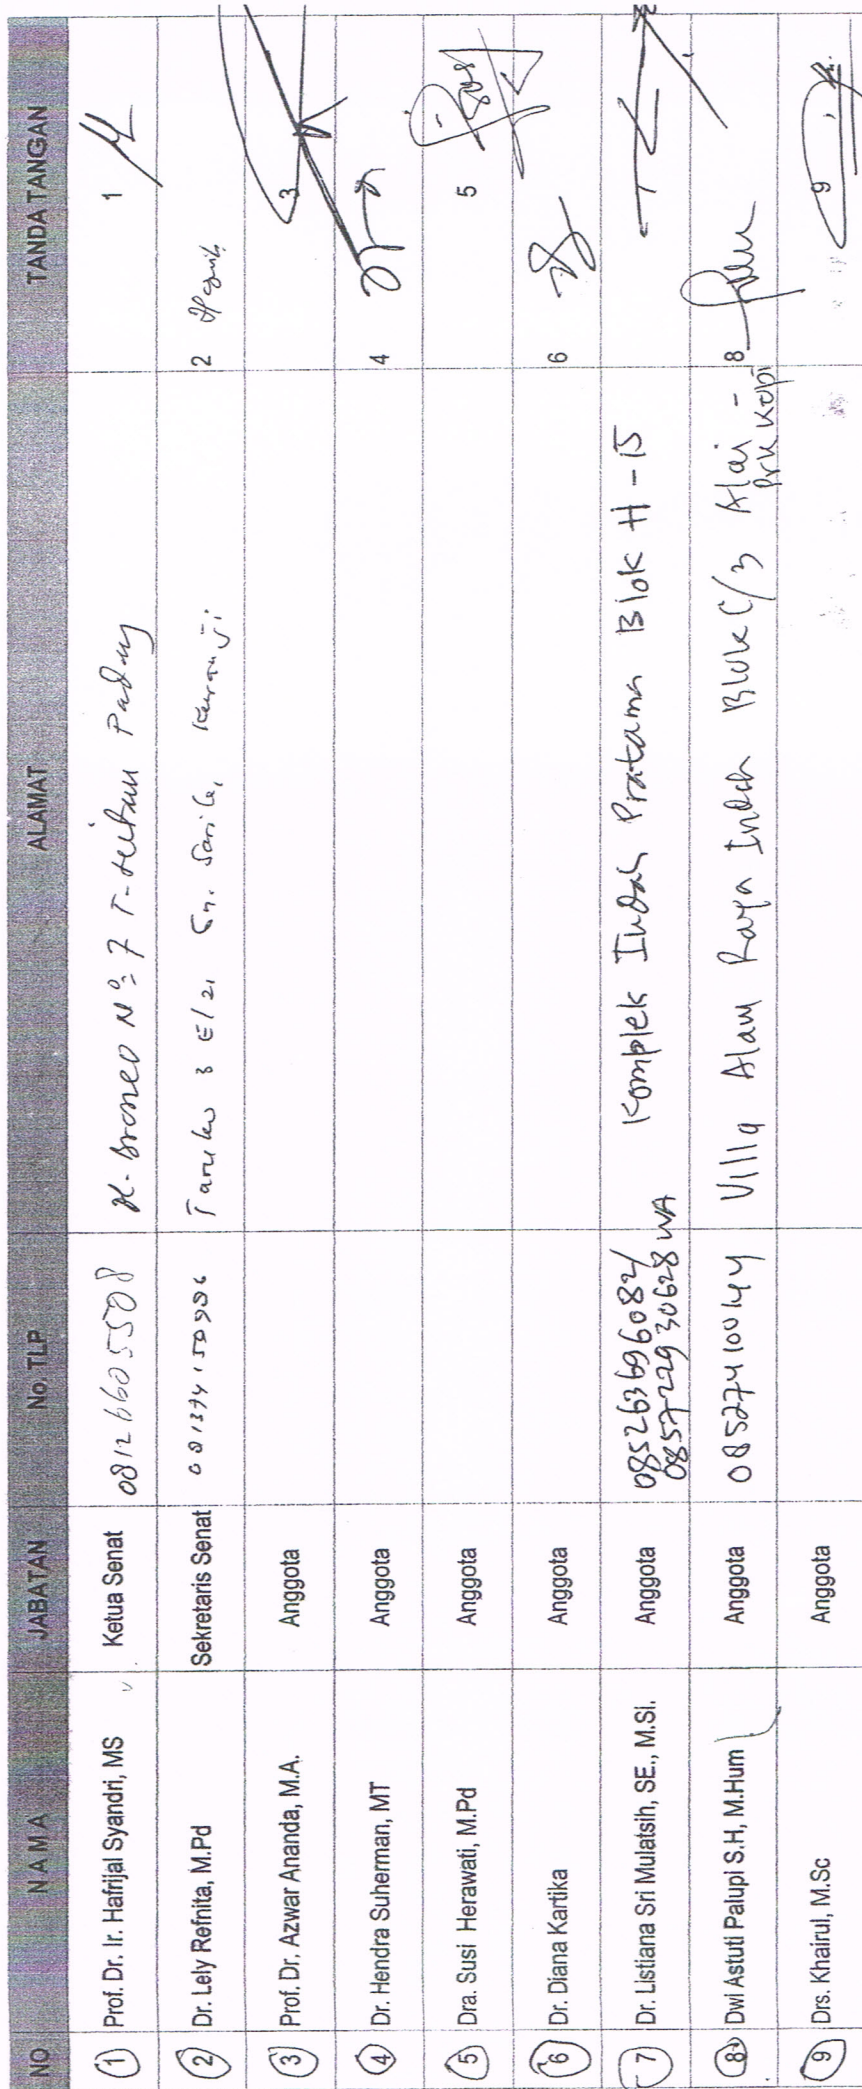 NO NAMA JABATAN No. TLP ALAMAT TANDA TANGAN
1 Prof. Dr. Ir. Hafrijal Syandri, MS Ketua Senat 0812 660 5508 Padang 1
2 Dr. Lely Refnita, M.Pd Sekretaris Senat 2
3 Prof. Dr, Azwar Ananda, M.A. Anggota 3
4 Dr. Hendra Suherman, MT Anggota 4
5 Dra. Susi Herawati, M.Pd Anggota 5
6 Dr. Diana Kartika Anggota 6
7 Dr. Listiana Sri Mulatsih, SE., M.Si. Anggota 085263696082/ Komplek Indah Pratama Blok H-15
0857229 30628 WA
8 Dwi Astuti Palupi S.H, M.Hum Anggota 085274100144 Villa Alam Raya Indah Blok C/3 Alai - 8
Prk Kopi
9 Drs. Khairul, M.Sc Anggota 9